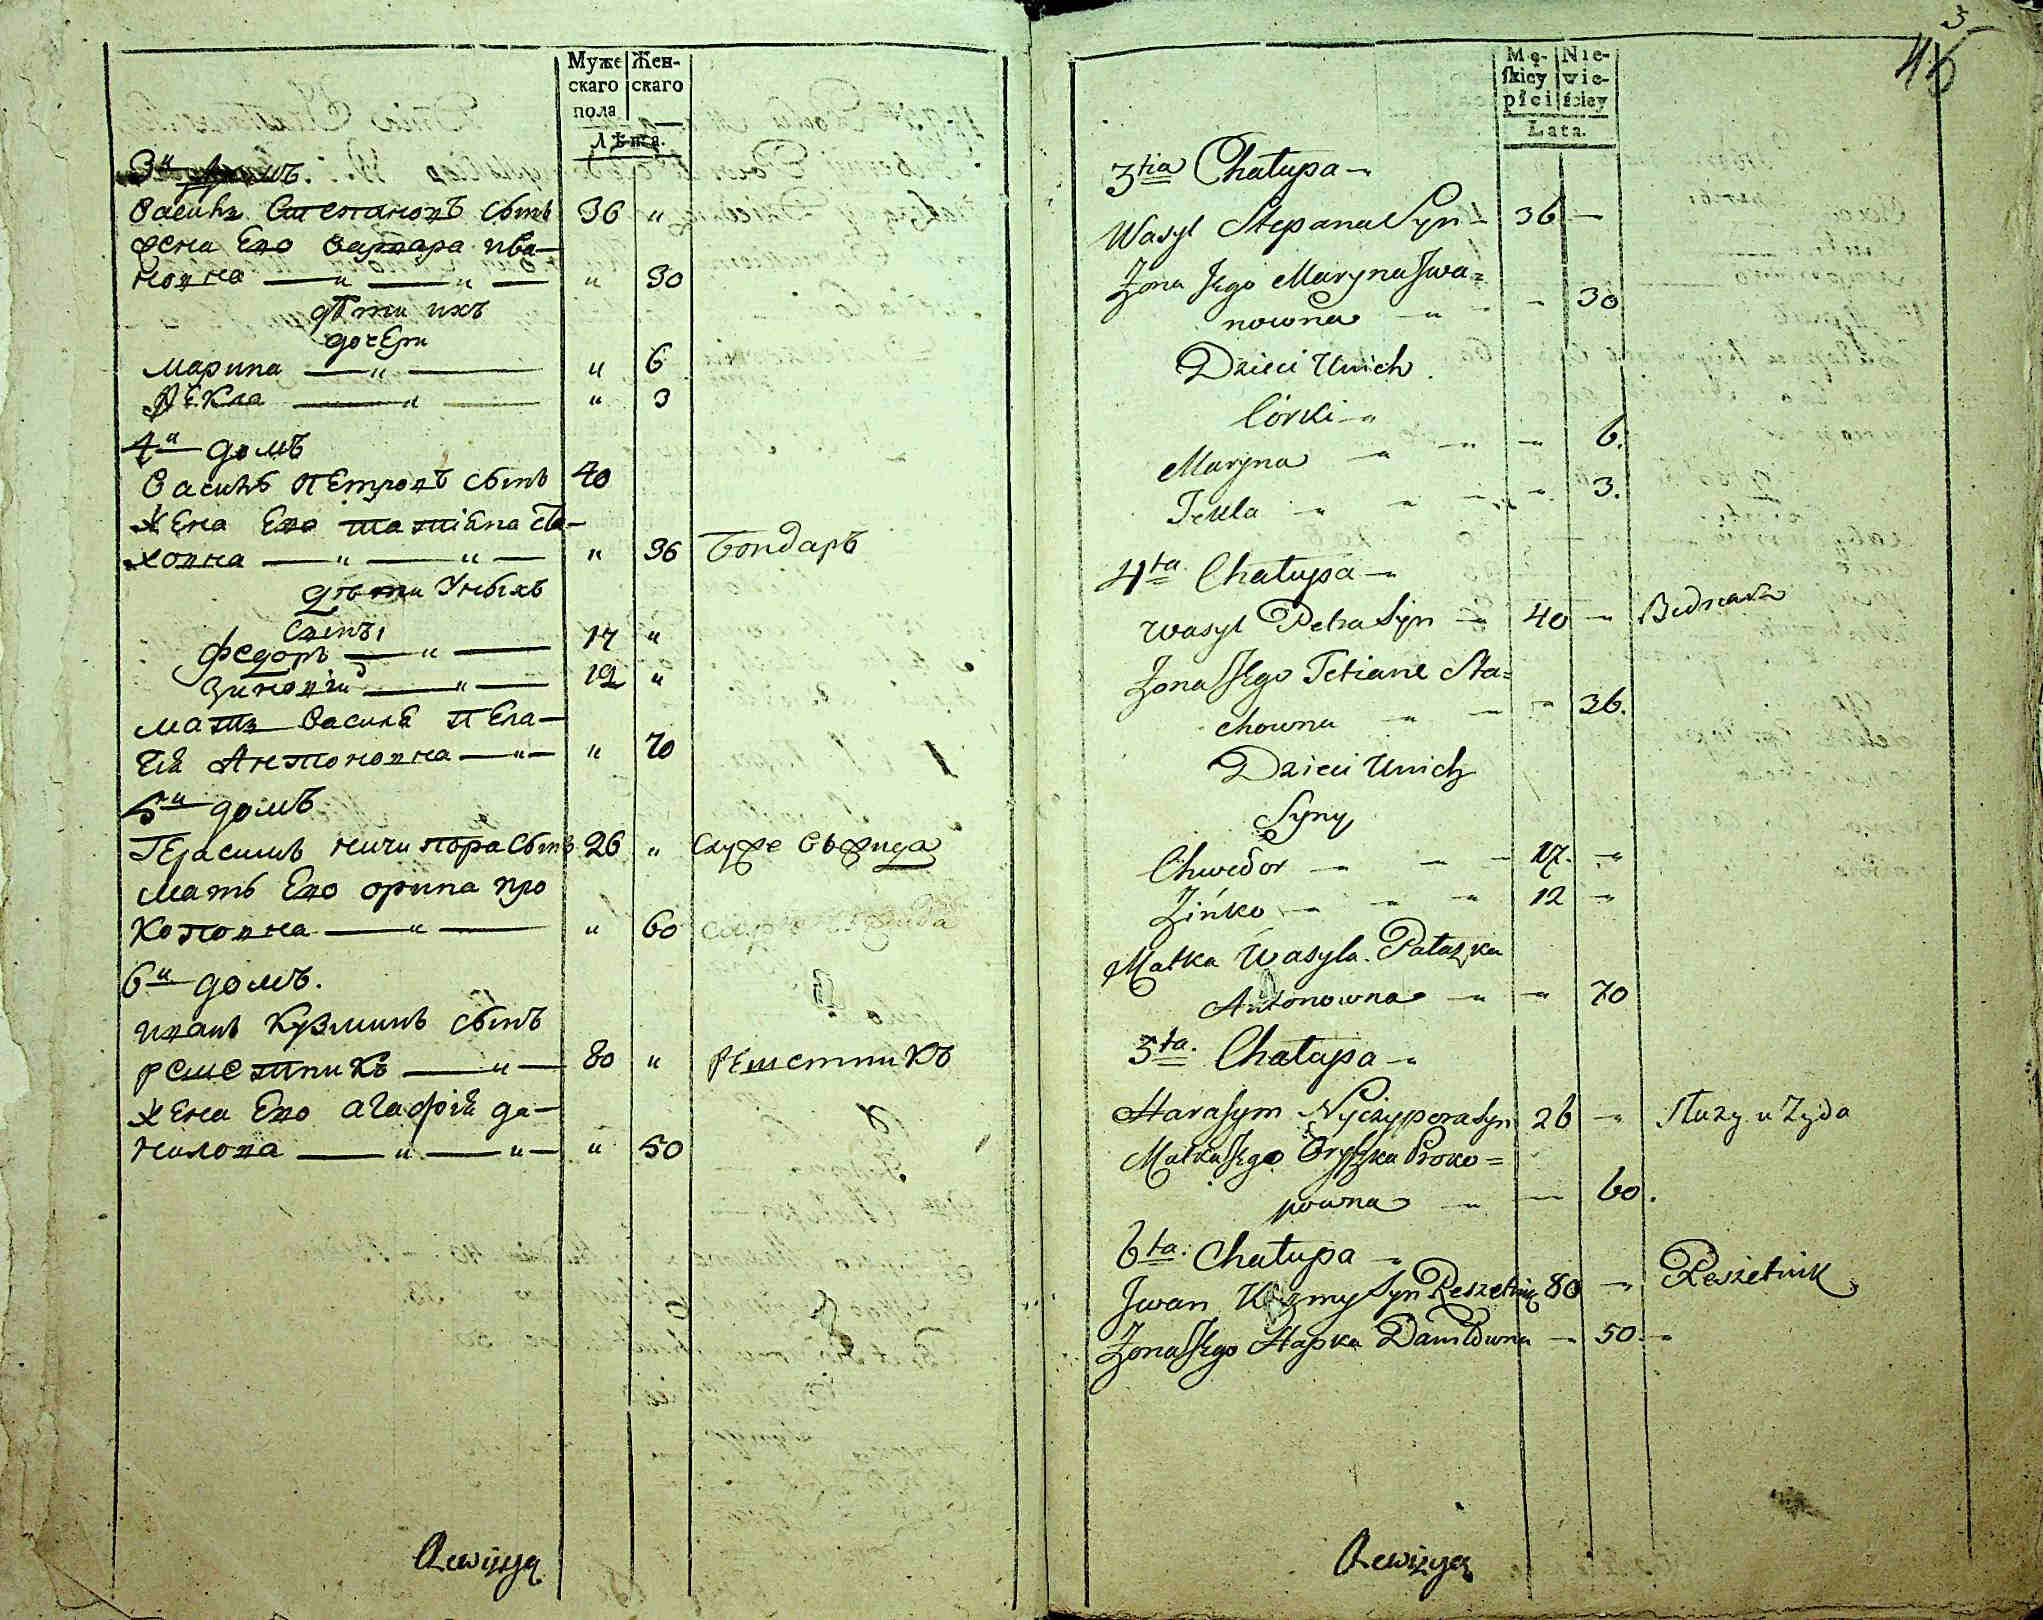 Муже
скаго
пола
Жен-
скаго
Лѣта.
3й домъ.
Василь Степановъ сынъ 36 "
жена Ево варвара ива-
новна — " — " — " 30
дѣти ихъ
дочери
марина — " — " 6
Ѳекла — " — " 3
4й домъ
Василь Петровъ сынъ 40
жена Ево татіана ста-
ховна — " — " — " 36 Бондаръ
дѣти У нихъ
сыны
федоръ — " — 17 "
зиновій — " — 12 "
мать Василя Пела-
гія Антоновна — " — " 70
5й домъ
Герасимъ ничипора сынъ 26 " служе въ жида
мать Ево орина про
коповна — " — " 60
6й домъ.
иванъ Кузминъ сынъ
решетникъ — " — 80 " решетникъ
жена Ево агафія да-
нилова — " — " — " 50
Rewizyą
3
46
Mę-
skiey
płci
Nie-
wie-
ściey
Lata.
3tia Chałupa —
Wasyl Stepana Syn — 36 —
Zona Jego Maryna Jwa=
nowna — " — — 30
Dzieci Unich
Córki — "
Maryna — " — " — 6.
Tekla — " — " — 3.
4ta Chałupa — "
Wasyl Petra Syn — 40 — Bednarz
Zona Jego Tetiana Sta=
chowna — " — — 36.
Dzieci Unich
Syny
Chwedor — " — 17. — "
Zińko — " — " 12 — "
Matka Wasyla Pałazka
Antonowna — " — " 70
5ta. Chałupa — "
Harasym Nyczypora Syn 26 — Służy u Zyda
Matka Jego Oryszka Proko=
powna — " — 60.
6ta. Chałupa — "
Jwan Kuzmy Syn Reszetnik 80 — Reszetnik
Zona Jego Hapka Daniłowna — 50. — "
Rewizyą